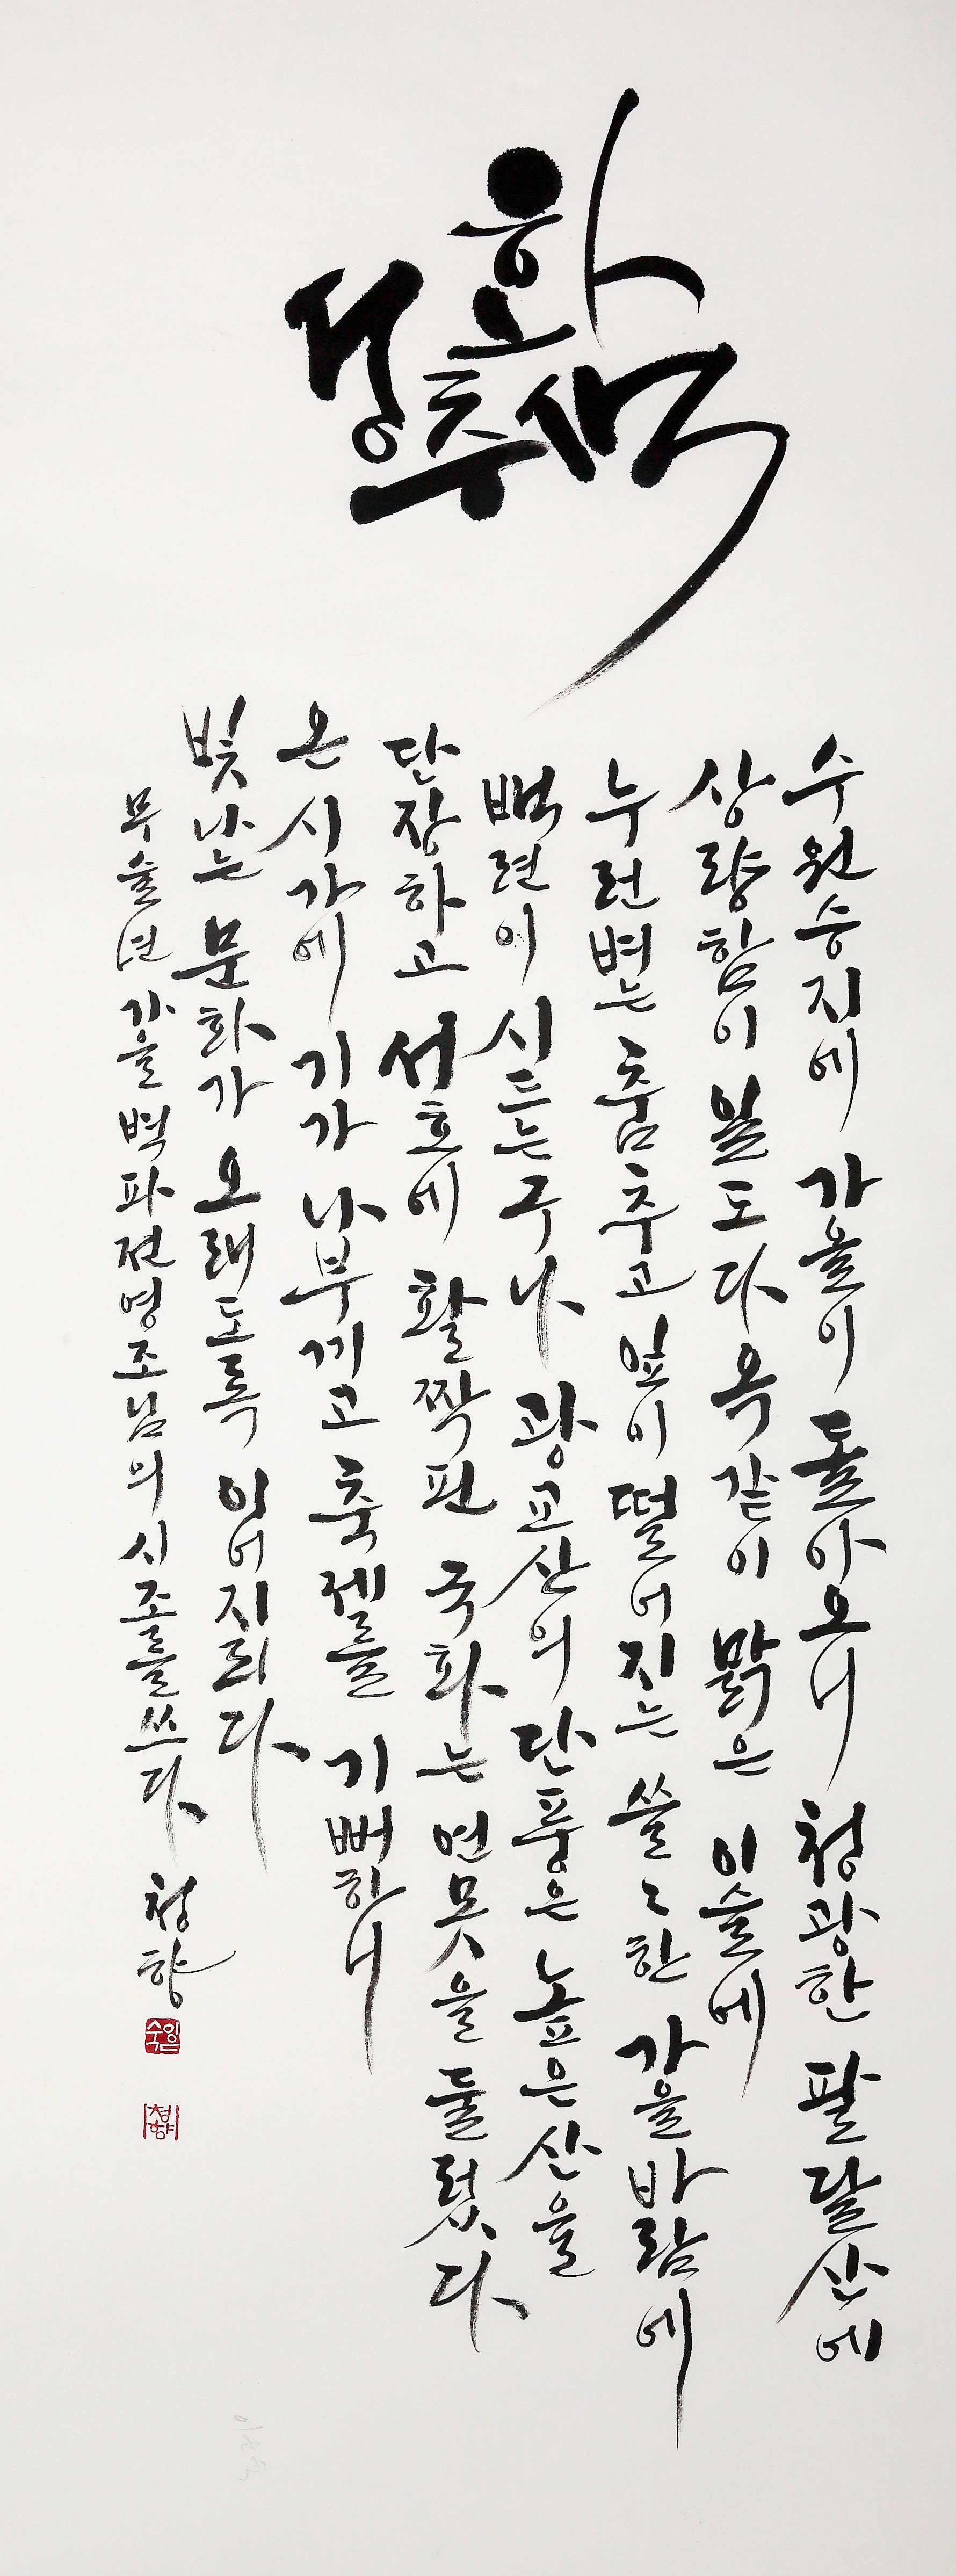 화성추색
수원승지에 가을이 돌아오니 청광한 팔달산에
상량함이 일도다 옥같이 맑은 이슬에
누런 벼는 춤추고 잎이 떨어지는 쓸〻한 가을바람에
백련이 시드는구나 광교산의 단풍은 높은 산을
단장하고 서호에 활짝 핀 국화는 연못을 둘렀다
온 시가에 기가 나부끼고 축제를 기뻐하니
빛나는 문화가 오래도록 이어지리다
무술년 가을 백파 전영조님의 시조를 쓰다 청향
청향